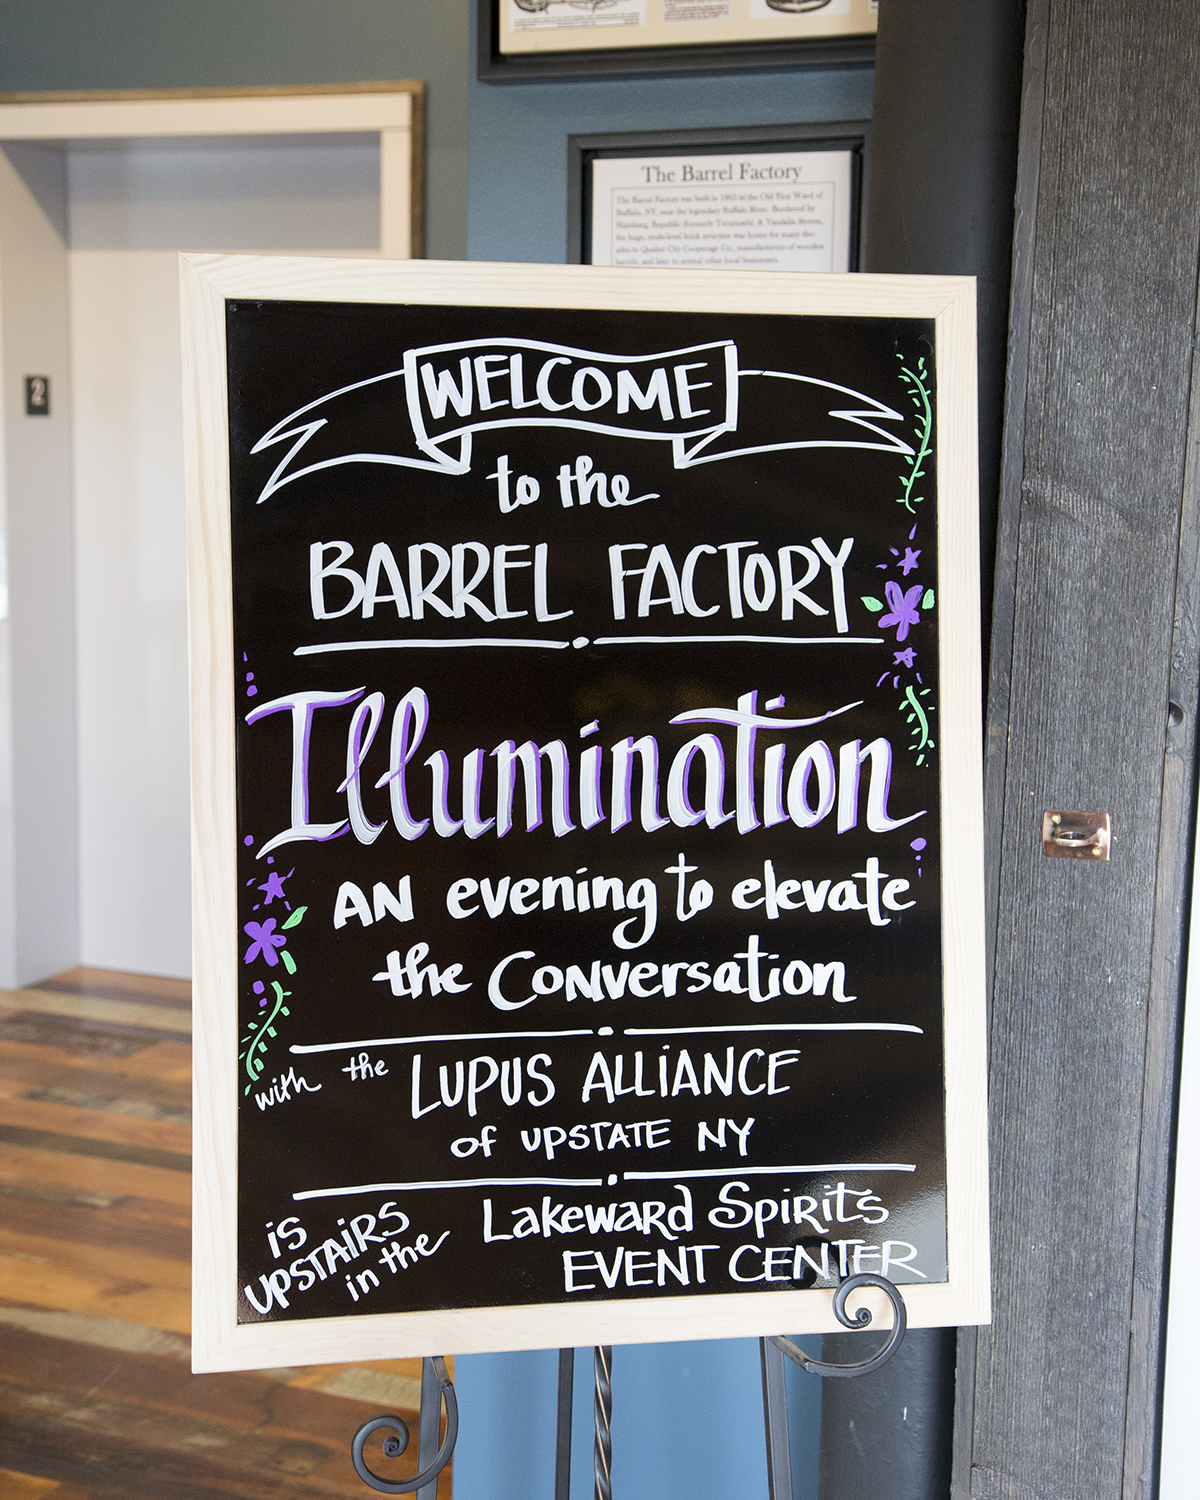 The Barrel Factory
The Barrel Factory was built in 1903 at the Old First Ward of
Buffalo, NY, near the legendary Buffalo River. Bordered by
Hamburg, Republic (formerly Tecumseh), & Vandalia Streets,
the huge, multi-level brick structure was home for many dec-
ades to Quaker City Cooperage Co., manufacturers of wooden
barrels, and later to several other local businesses.
2
WELCOME
to the
BARREL FACTORY
Illumination
AN evening to elevate
the Conversation
with the LUPUS ALLIANCE
of UPSTATE NY
is
UPSTAIRS
in the
Lakeward Spirits
EVENT CENTER